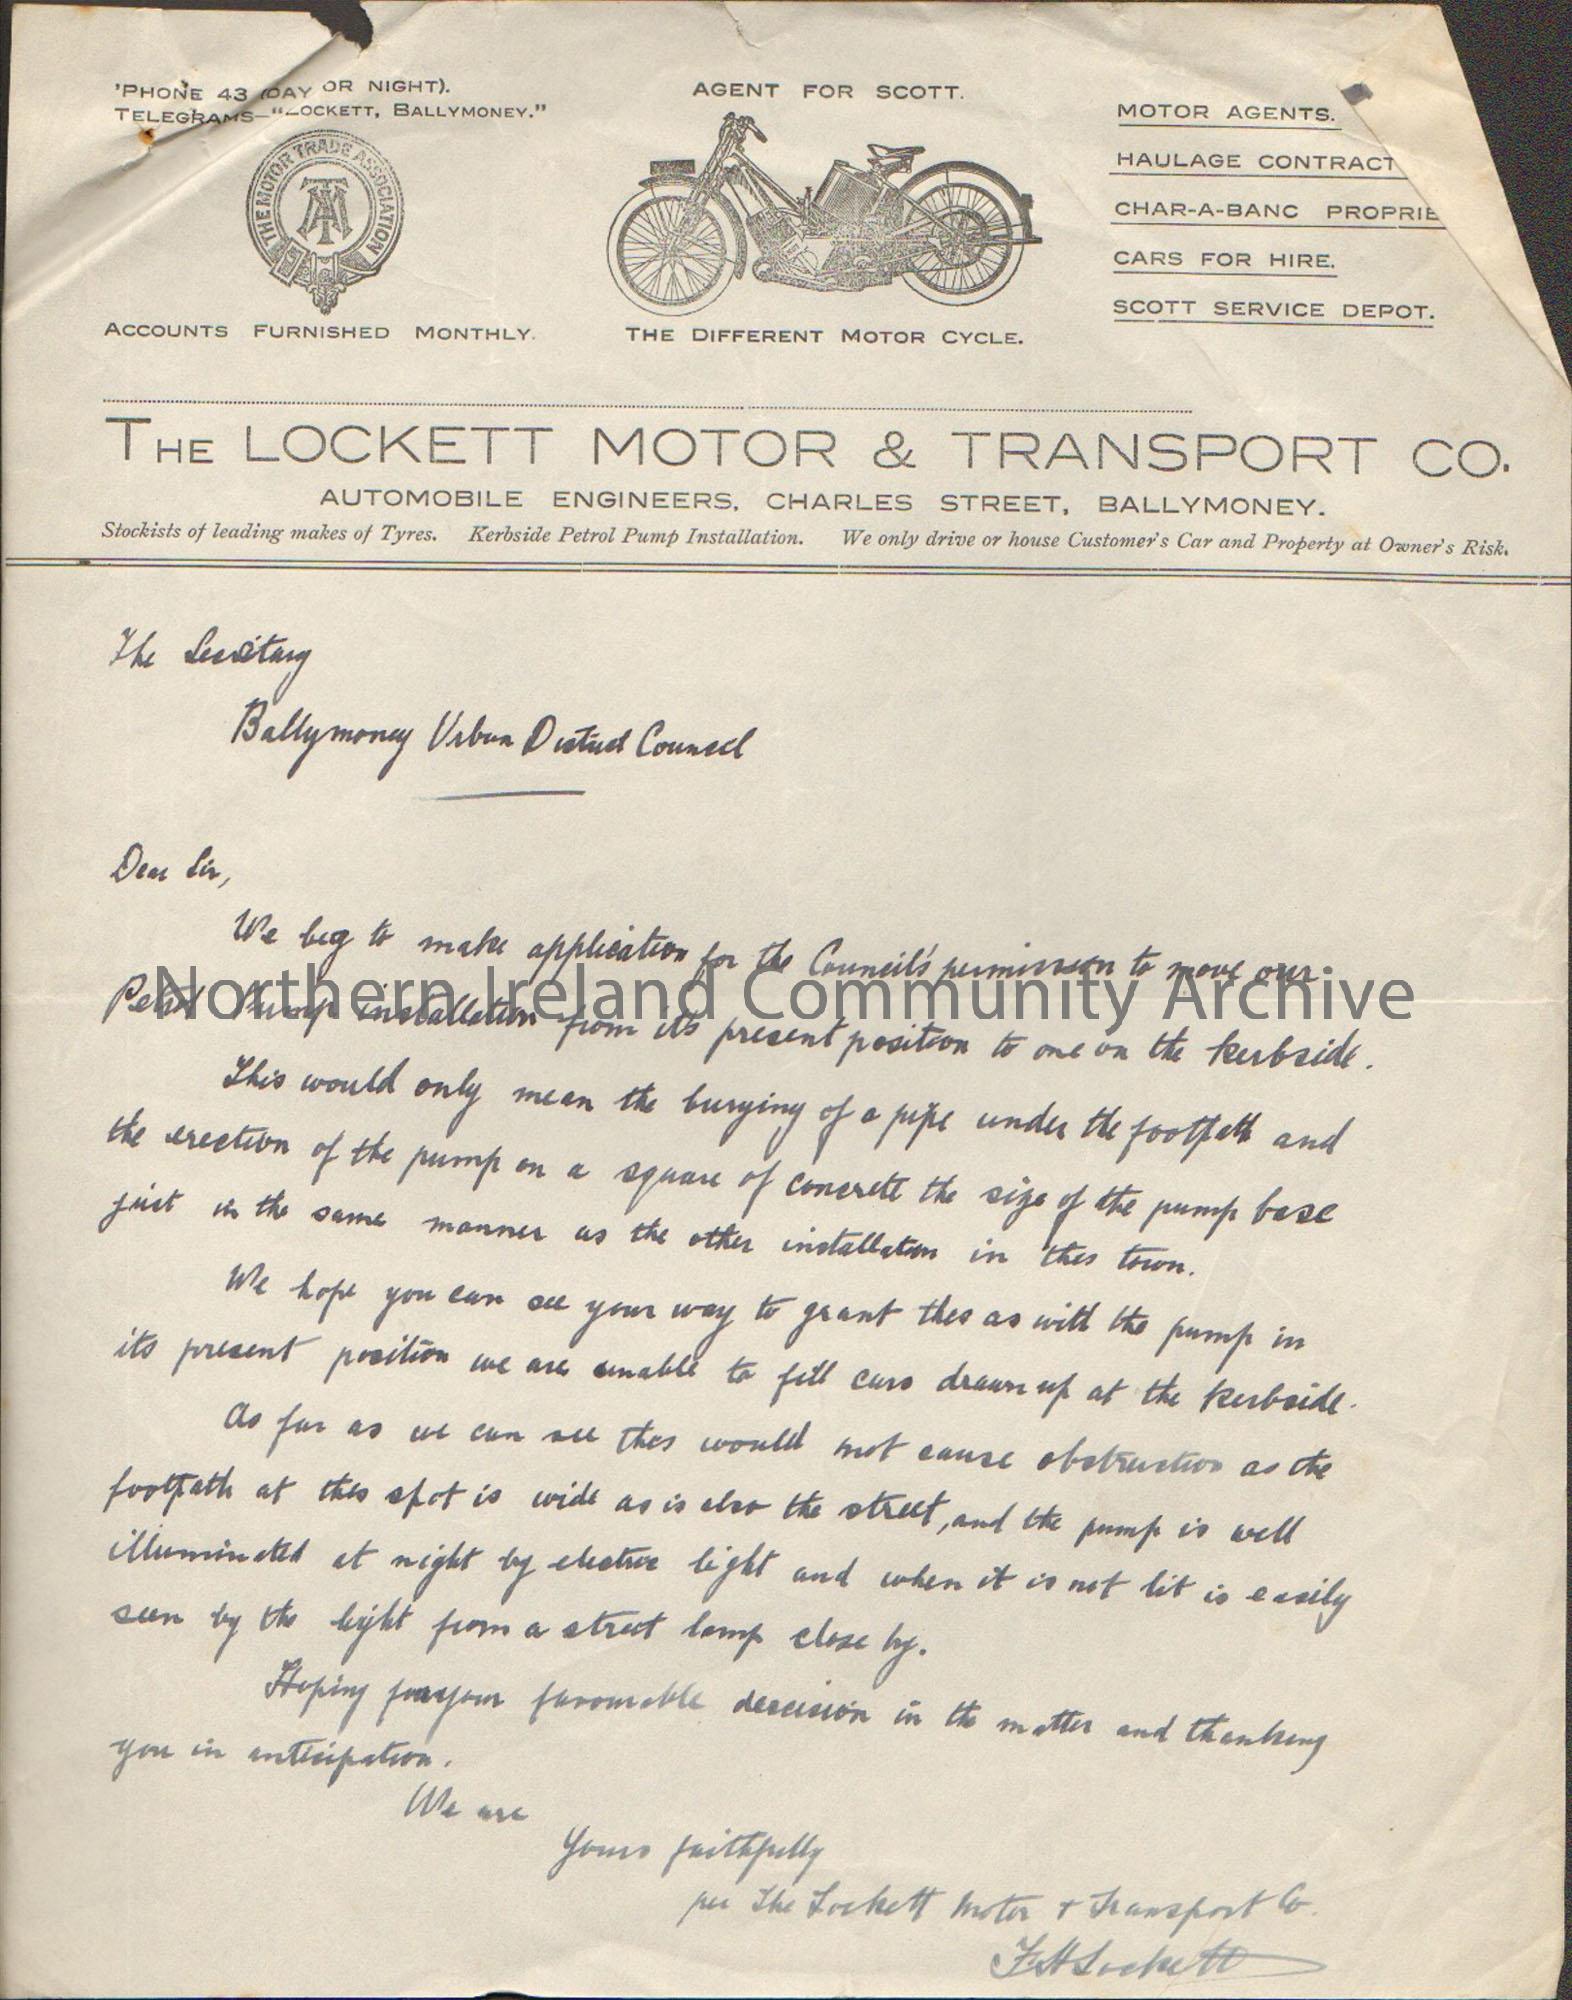 'PHONE 43 (DAY OR NIGHT).
TELEGRAMS—"LOCKETT, BALLYMONEY."
THE MOTOR TRADE ASSOCIATION
MTA
ACCOUNTS FURNISHED MONTHLY.
AGENT FOR SCOTT.
THE DIFFERENT MOTOR CYCLE.
MOTOR AGENTS.
HAULAGE CONTRACT
CHAR-A-BANC PROPRIE
CARS FOR HIRE.
SCOTT SERVICE DEPOT.
THE LOCKETT MOTOR & TRANSPORT CO.
AUTOMOBILE ENGINEERS, CHARLES STREET, BALLYMONEY.
Stockists of leading makes of Tyres. Kerbside Petrol Pump Installation. We only drive or house Customer's Car and Property at Owner's Risk.
The Secretary
Ballymoney Urban District Council
Dear Sir,
We beg to make application for the Council's permission to move our
Petrol Pump installation from it's present position to one on the kerbside.
Northern Ireland Community Archive
This would only mean the burying of a pipe under the footpath and
the erection of the pump on a square of concrete the size of the pump base
just in the same manner as the other installation in this town.
We hope you can see your way to grant this as with the pump in
its present position we are unable to fill cars drawn up at the kerbside.
As far as we can see this would not cause obstruction as the
footpath at this spot is wide as is also the street, and the pump is well
illuminated at night by electric light and when it is not lit is easily
seen by the light from a street lamp close by.
Hoping for your favourable descision in the matter and thanking
you in anticipation.
We are
Yours faithfully
per The Lockett Motor + Transport Co.
F H Lockett